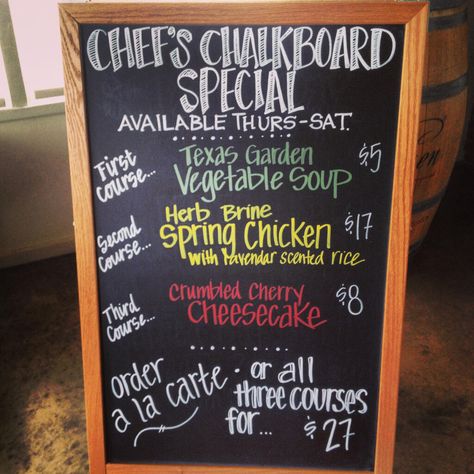 CHEF'S CHALKBOARD
SPECIAL
AVAILABLE THURS-SAT.
First
Course...
Texas Garden
Vegetable Soup
$5
Second
Course...
Herb Brine
Spring Chicken
with lavendar scented rice
$17
Third
Course...
Crumbled Cherry
Cheesecake
$8
order
a la carte
- or all
three courses
for...
$27